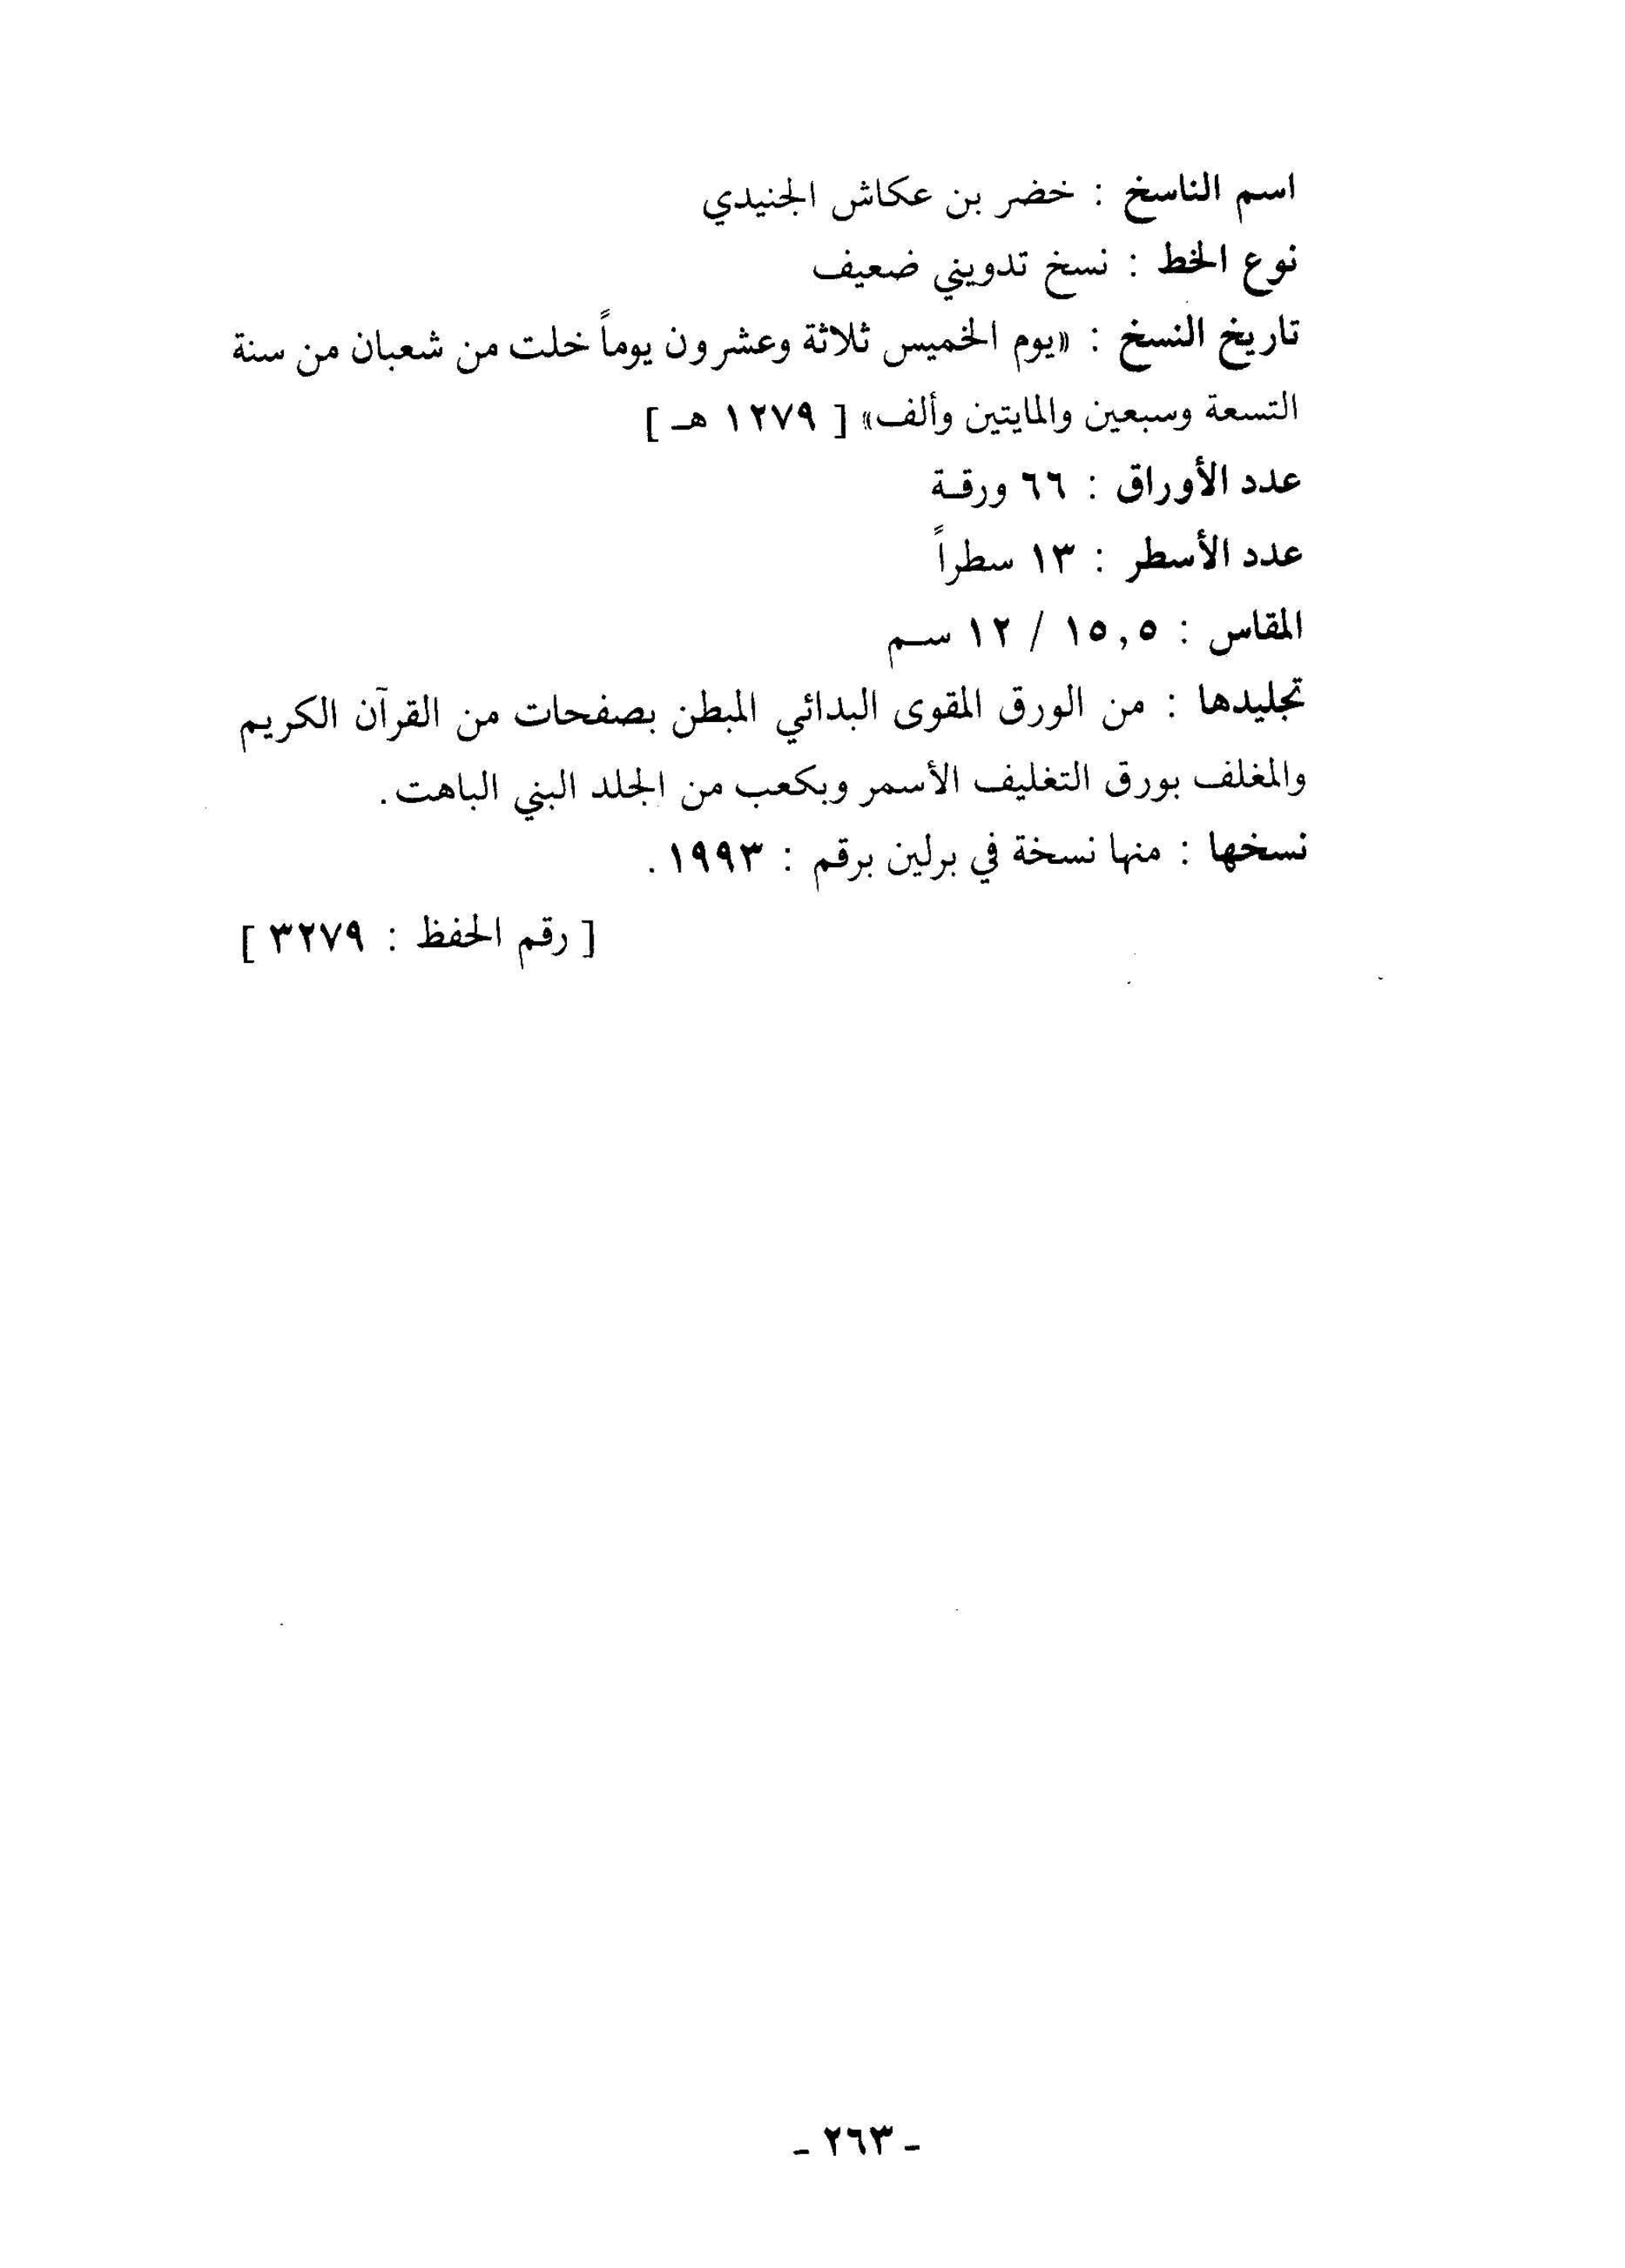 اسم الناسخ : خضر بن عكاش الجنيدي
نوع الخط : نسخ تدويني ضعيف
تاريخ النسخ : «يوم الخميس ثلاثة وعشرون يوماً خلت من شعبان من سنة
التسعة وسبعين والمايتين وألف» [ ١٢٧٩ هـ ]
عدد الأوراق : ٦٦ ورقة
عدد الأسطر : ١٣ سطراً
المقاس : ١٥,٥ / ١٢ سم
تجليدها : من الورق المقوى البدائي المبطن بصفحات من القرآن الكريم
والمغلف بورق التغليف الأسمر وبكعب من الجلد البني الباهت.
نسخها : منها نسخة في برلين برقم : ١٩٩٣ .
[ رقم الحفظ : ٣٢٧٩ ]
- ٢٦٣ -